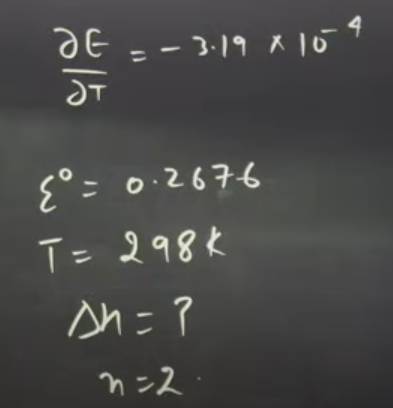 ∂E/∂T = - 3.19 × 10⁻⁴
ε° = 0.2676
T = 298 K
Δh = ?
n = 2.